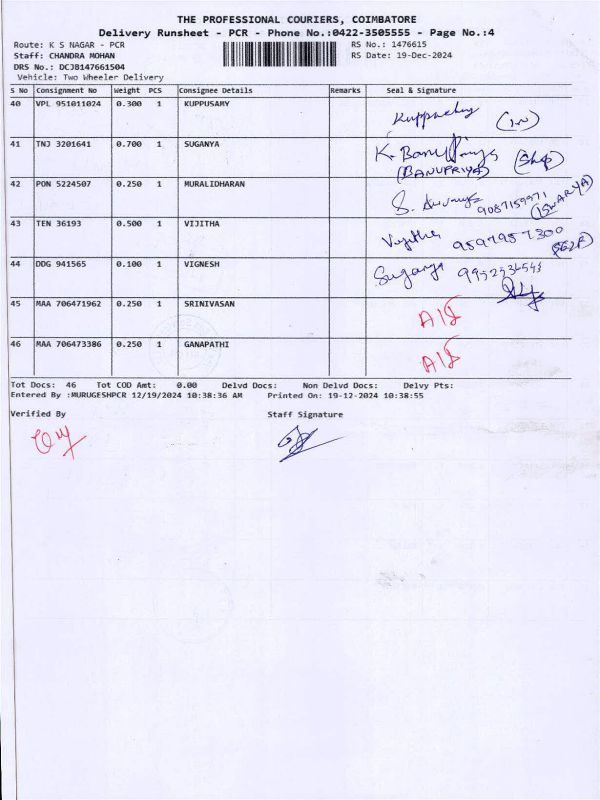 THE PROFESSIONAL COURIERS, COIMBATORE
Delivery Runsheet - PCR - Phone No.:0422-3505555 - Page No.:4
Route: K S NAGAR - PCR RS No.: 1476615
Staff: CHANDRA MOHAN RS Date: 19-Dec-2024
DRS No.: DCJB147661504
Vehicle: Two Wheeler Delivery
S No Consignment No Weight PCS Consignee Details Remarks Seal & Signature
40 VPL 951011024 0.300 1 KUPPUSAMY
41 TNJ 3201641 0.700 1 SUGANYA
(BANUPRIYA)
42 PON 5224507 0.250 1 MURALIDHARAN
9087159971 (ISWARYA)
43 TEN 36193 0.500 1 VIJITHA Vijitha 9597957300 (SELF)
44 DDG 941565 0.100 1 VIGNESH Suganya
45 MAA 706471962 0.250 1 SRINIVASAN
46 MAA 706473386 0.250 1 GANAPATHI
Tot Docs: 46 Tot COD Amt: 0.00 Delvd Docs: Non Delvd Docs: Delvy Pts:
Entered By :MURUGESHPCR 12/19/2024 10:38:36 AM Printed On: 19-12-2024 10:38:55
Verified By Staff Signature